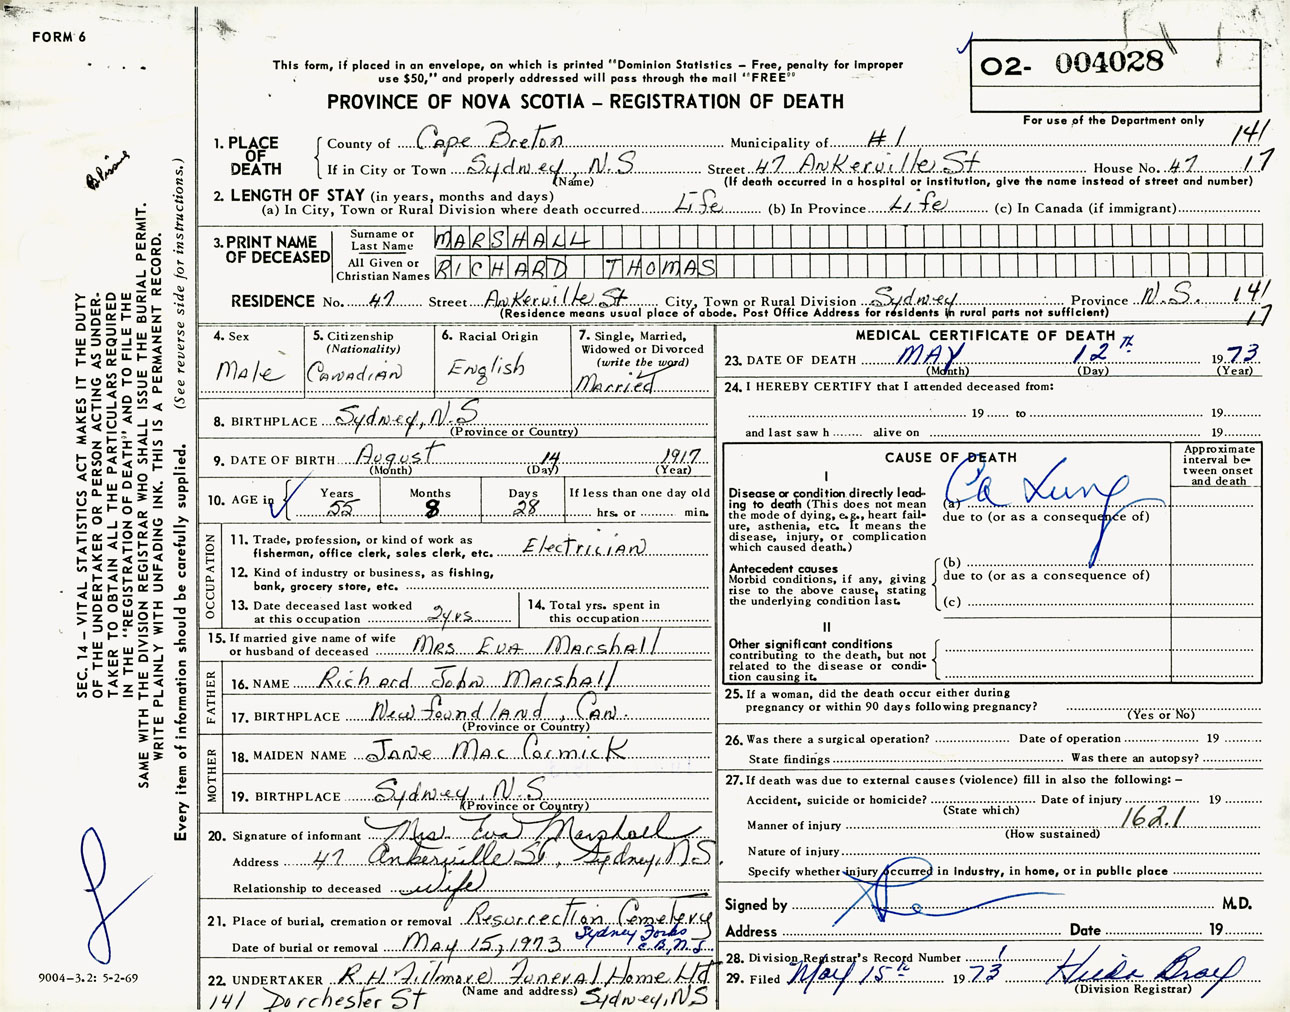 FORM 6
This form, if placed in an envelope, on which is printed "Dominion Statistics – Free, penalty for improper
use $50," and properly addressed will pass through the mail "FREE"
PROVINCE OF NOVA SCOTIA – REGISTRATION OF DEATH
02- 004028
For use of the Department only
1. PLACE OF DEATH
County of Cape Breton Municipality of #1 141
If in City or Town Sydney, N.S Street 47 Ankerville St House No. 47 17
(Name) (If death occurred in a hospital or institution, give the name instead of street and number)
2. LENGTH OF STAY (in years, months and days)
(a) In City, Town or Rural Division where death occurred Life (b) In Province Life (c) In Canada (if immigrant)
3. PRINT NAME OF DECEASED
Surname or Last Name MARSHALL
All Given or Christian Names RICHARD THOMAS
RESIDENCE No. 47 Street Ankerville St City, Town or Rural Division Sydney Province N.S. 141
(Residence means usual place of abode. Post Office Address for residents in rural parts not sufficient) 17
4. Sex
Male
5. Citizenship
(Nationality)
Canadian
6. Racial Origin
English
7. Single, Married,
Widowed or Divorced
(write the word)
Married
8. BIRTHPLACE Sydney, N.S
(Province or Country)
9. DATE OF BIRTH August 14 1917
(Month) (Day) (Year)
10. AGE in
Years Months Days If less than one day old
55 8 28 hrs. or min.
OCCUPATION
11. Trade, profession, or kind of work as
fisherman, office clerk, sales clerk, etc. Electrician
12. Kind of industry or business, as fishing,
bank, grocery store, etc.
13. Date deceased last worked
at this occupation 2yrs
14. Total yrs. spent in
this occupation
15. If married give name of wife
or husband of deceased Mrs Eva Marshall
FATHER
16. NAME Richard John Marshall
17. BIRTHPLACE Newfoundland, Can.
(Province or Country)
MOTHER
18. MAIDEN NAME Jane MacCormick
19. BIRTHPLACE Sydney, N.S
(Province or Country)
20. Signature of informant Mrs Eva Marshall
Address 47 Ankerville St, Sydney, N.S.
Relationship to deceased wife
21. Place of burial, cremation or removal Resurrection Cemetery
Sydney Forks
Date of burial or removal May 15, 1973
22. UNDERTAKER R H Fillmore Funeral Home Ltd
(Name and address)
141 Dorchester St Sydney, NS
MEDICAL CERTIFICATE OF DEATH
23. DATE OF DEATH MAY 12th 1973
(Month) (Day) (Year)
24. I HEREBY CERTIFY that I attended deceased from:
19 to 19
and last saw h alive on 19
CAUSE OF DEATH
Approximate
interval be-
tween onset
and death
I
Disease or condition directly lead-
ing to death (This does not
mean the mode of dying, e.g., heart fail-
ure, asthenia, etc. It means the
disease, injury, or complication
which caused death.)
(a) Ca Lung
due to (or as a consequence of)
Antecedent causes
Morbid conditions, if any, giving
rise to the above cause, stating
the underlying condition last.
(b)
due to (or as a consequence of)
(c)
II
Other significant conditions
contributing to the death, but not
related to the disease or condi-
tion causing it.
25. If a woman, did the death occur either during
pregnancy or within 90 days following pregnancy?
(Yes or No)
26. Was there a surgical operation? Date of operation 19
State findings Was there an autopsy?
27. If death was due to external causes (violence) fill in also the following: –
Accident, suicide or homicide? Date of injury 19
(State which)
Manner of injury 162.1
(How sustained)
Nature of injury
Specify whether injury occurred in industry, in home, or in public place
Signed by M.D.
Address Date 19
28. Division Registrar's Record Number 1
29. Filed May 15th 1973 Hilda Bray
(Division Registrar)
SEC. 14 – VITAL STATISTICS ACT MAKES IT THE DUTY
OF THE UNDERTAKER OR PERSON ACTING AS UNDER-
TAKER TO OBTAIN ALL THE PARTICULARS REQUIRED
IN THE "REGISTRATION OF DEATH" AND TO FILE THE
SAME WITH THE DIVISION REGISTRAR WHO SHALL ISSUE THE BURIAL PERMIT.
WRITE PLAINLY WITH UNFADING INK. THIS IS A PERMANENT RECORD.
Every item of information should be carefully supplied. (See reverse side for instructions.)
9004–3.2: 5-2-69